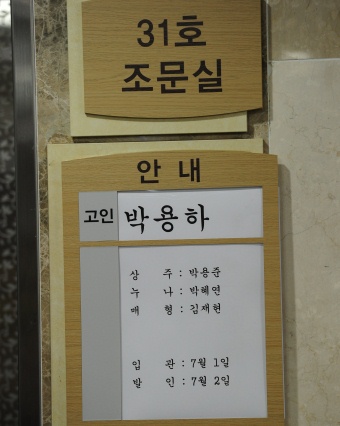 31호
조문실
안 내
고인 박용하
상 주 : 박용준
누 나 : 박혜연
매 형 : 김재현
입 관 : 7월 1일
발 인 : 7월 2일